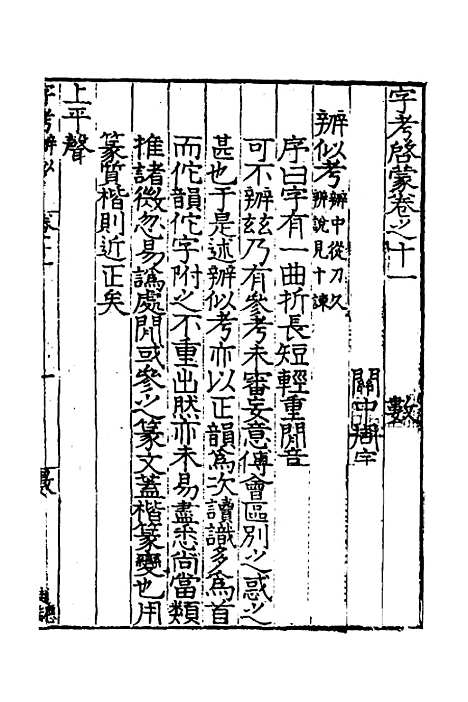 字考啓蒙卷之十一
數
關中周宇
辨似考辨中從刀久
辨說見十諫
序曰字有一曲折長短輕重閒音
可不辨玆乃有參考未審妄意傅會區別之惑之
甚也于是述辨似考亦以正韻爲次讀識多爲首
而佗韻佗字附之不重出然亦未易盡悉尚當類
推諸微忽易譌處閒或參之篆文蓋楷篆變也用
篆質楷則近正矣
上平聲
字考辨似
卷之十一
一
數